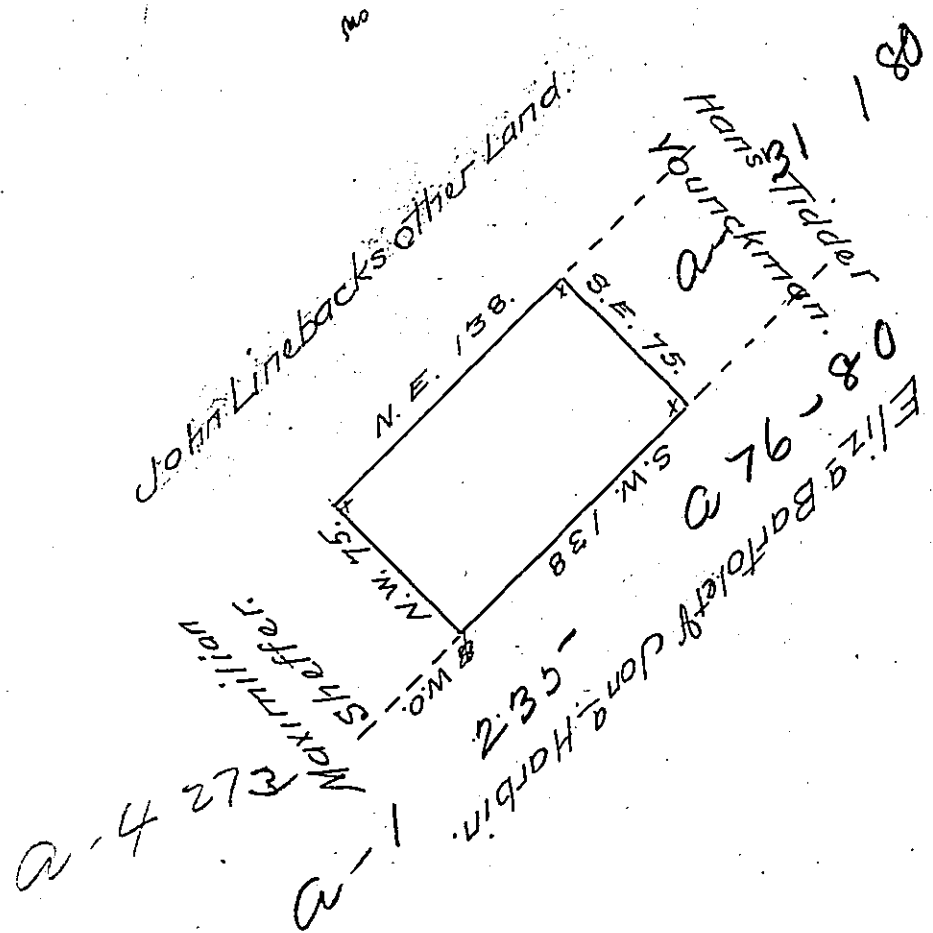 John Linebacks other Land.
Hans Tidder
Younckman.
a 31 180
N. E. 138.
S. E. 75.
S. W. 138
N. W. 75.
B W.O.
Maximilian
Sheffer.
a 76-80
Eliz a Bartolety Jon a Harbin.
a-1 235-
a-4 273